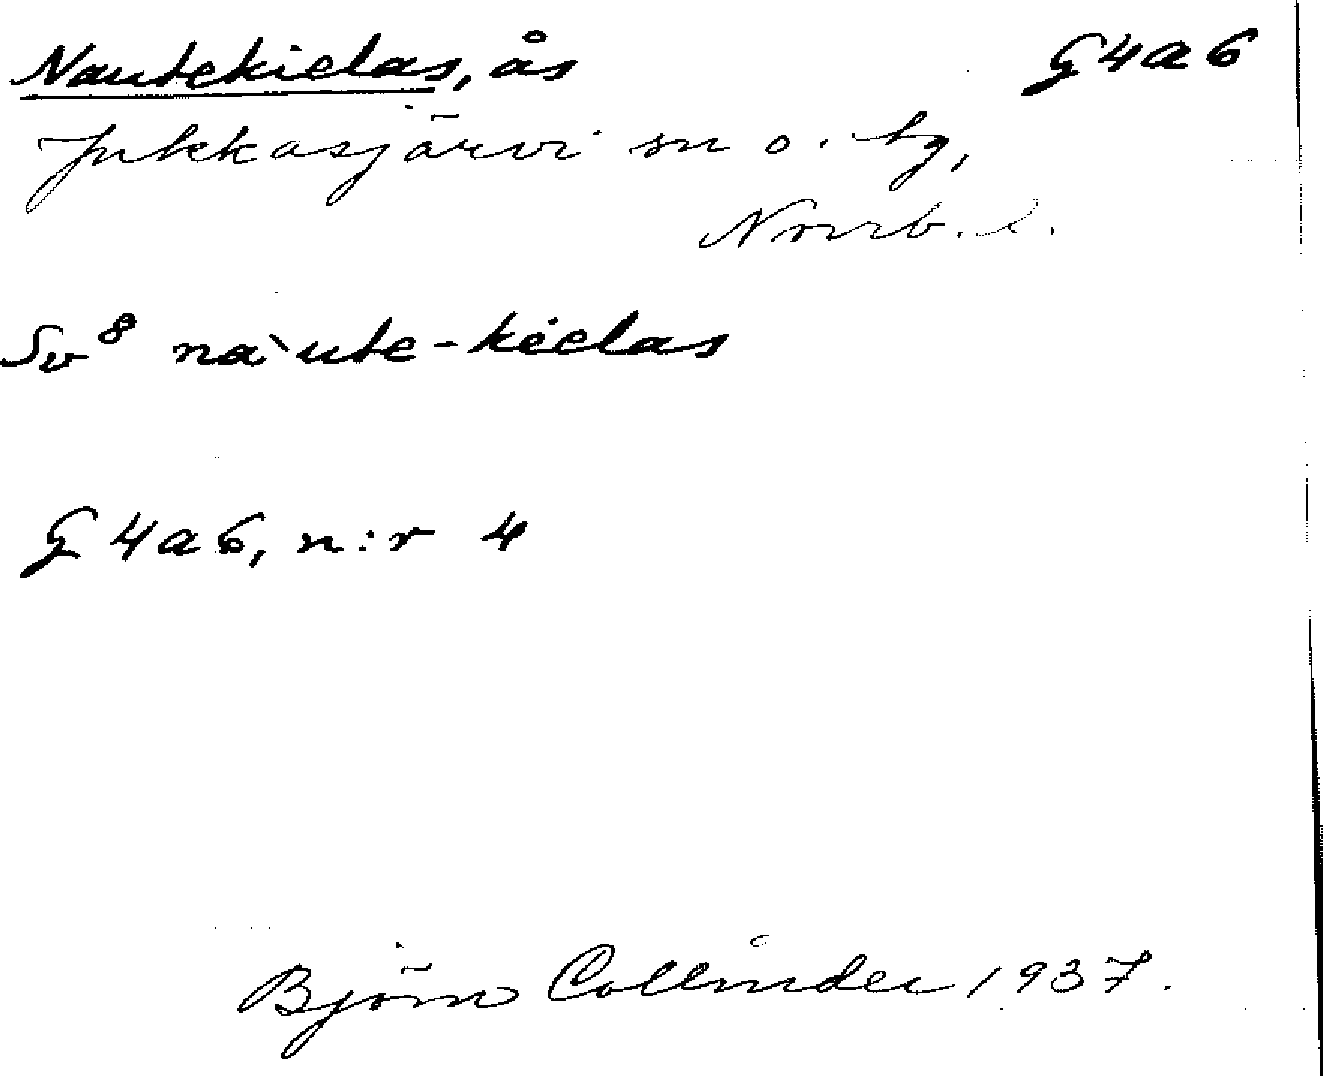 Nautekielas, ås G4a6
Jukkasjärvi sn o. tg,
Norrb. l.
Sv⁸ na`ute-kielas
G 4a6, n:r 4
Björn Collinder 1937.